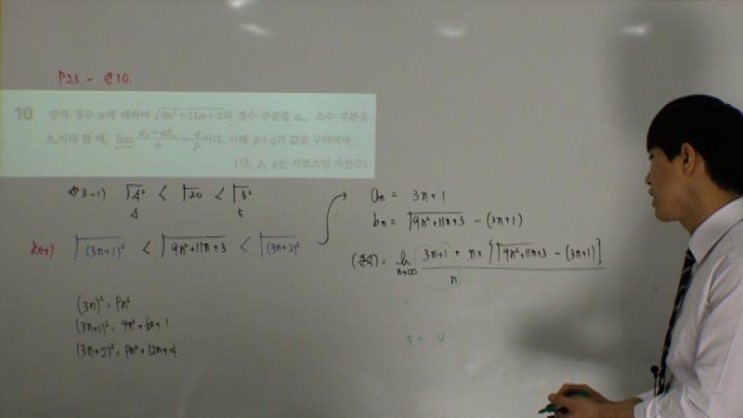 P23 - 연10.
10 양의 정수 n에 대하여 √9n²+11n+3의 정수 부분을 aₙ, 소수 부분을
bₙ이라 할 때, lim n→∞ (aₙ+nbₙ)/n = q/p이다. 이때 p+q의 값을 구하여라.
(단, p, q는 서로소인 자연수)
√4² < √20 < √5²
4 5
√(3n+1)² < √9n²+11n+3 < √(3n+2)²
(3n)² = 9n²
(3n+1)² = 9n²+6n+1
(3n+2)² = 9n²+12n+4
aₙ = 3n+1
bₙ = √9n²+11n+3 - (3n+1)
= lim n→∞ (3n+1 + n×{√9n²+11n+3 - (3n+1)})/n
3 +